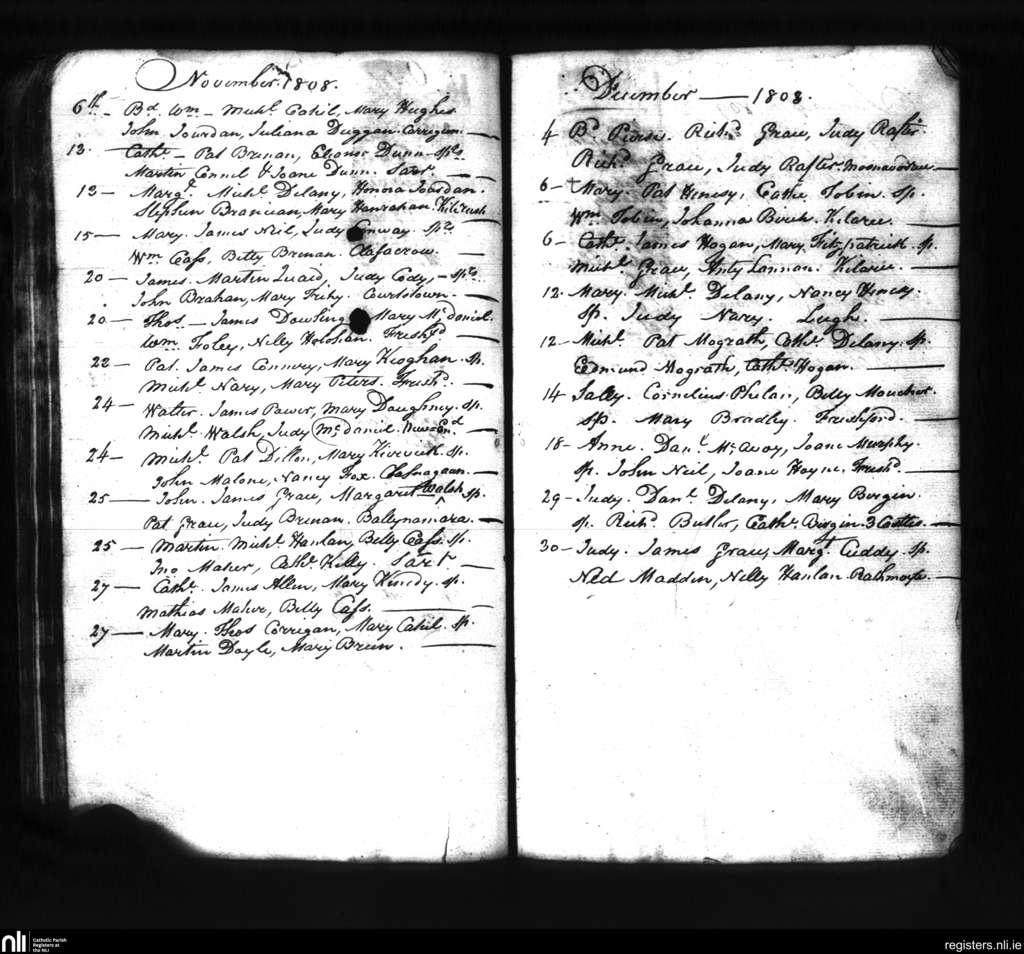 November. 1808.
6th - Bd. Wm - Michl. Cahil, Mary Hughes
John Jourdan, Juliana Duggan. Corrigeen. —
13. — Cathe. - Pat Brenan, Elionor Dunn - sprs
Martin Connel & Joane Dunn. Sart —
13 — Margt. Michl. Delany, Honora Jourdan.
Stephen Branican, Mary Hanrahan. Kilrush
15 — Mary. James Neil, Judy Conway. sprs
Wm. Cass, Betty Brenan. Clafacrow. —
20 — James. Martin Quaid, Judy Cody, - sprs.
John Brahan, Mary Trihy. Courtstown. —
20 — Thos. — James Dowling Mary Mc.daniel.
Wm. Foley, Nelly Holohan. Freshfd —
22 — Pat. James Conwey, Mary Keoghan. sp.
Michl. Nary, Mary Peters. Freshd. —
24 — Walter. James Power, Mary Doughney. sp.
Michl. Walsh, Judy Mc.daniel.
24 — Michl. Pat Dillon, Mary sp.
John Malone, Nancy Fox. Clasnagaun. —
25 — John. James Grace, Margaret Walsh sp.
Pat Grace, Judy Brenan. Baleynamara. —
25 — Martin. Michl. Hanlan, Billy Cass. sp.
Jno Maher, Cathe. Kelly. Sart —
27 — Cathe. James Allen, Mary Kinedy. sp.
Mathias Maher, Billy Cass. —
27 — Mary. Thos Corrigan, Mary Cahil. sp.
Martin Doyle, Mary Breen. —
December — 1808.
4 Bd. Pierse. Richd. Grace, Judy Rafter.
Richd. Grace, Judy Rafter.
6 - Mary. Pat Henesy, Cathe Tobin. sp.
Wm Tobin, Johanna Burk. Kilaree.
6 - Cathe. James Hogan, Mary Fitzpatrick. sp.
Michl. Grace, Anty Lannan. Kilaree. —
12. Mary. Michl. Delany, Nancy Henesy.
sp. Judy Nary. Lugh. —
12 - Michl. Pat Mograth, Cathe. Delany. sp.
Edmund Mograth, Cathe. Hogan. —
14 Sally. Cornelius Phelan, Billy Moucher.
sp. Mary Bradley. Freshford. —
18 - Anne. Danl. Mc.Avoy, Joane Murphy.
sp. John Neil, Joane Hoyne, Freshd. —
29 - Judy. Danl. Delany, Mary Bergin.
sp. Richd. Butler, Cathe. Birgin. 3 Castles. —
30 - Judy. James Grace, Margt. Cuddy. sp.
Ned Madden, Nelly Hanlan. Rathmoyle. —
nli Catholic Parish
Registers at
the NLI
registers.nli.ie